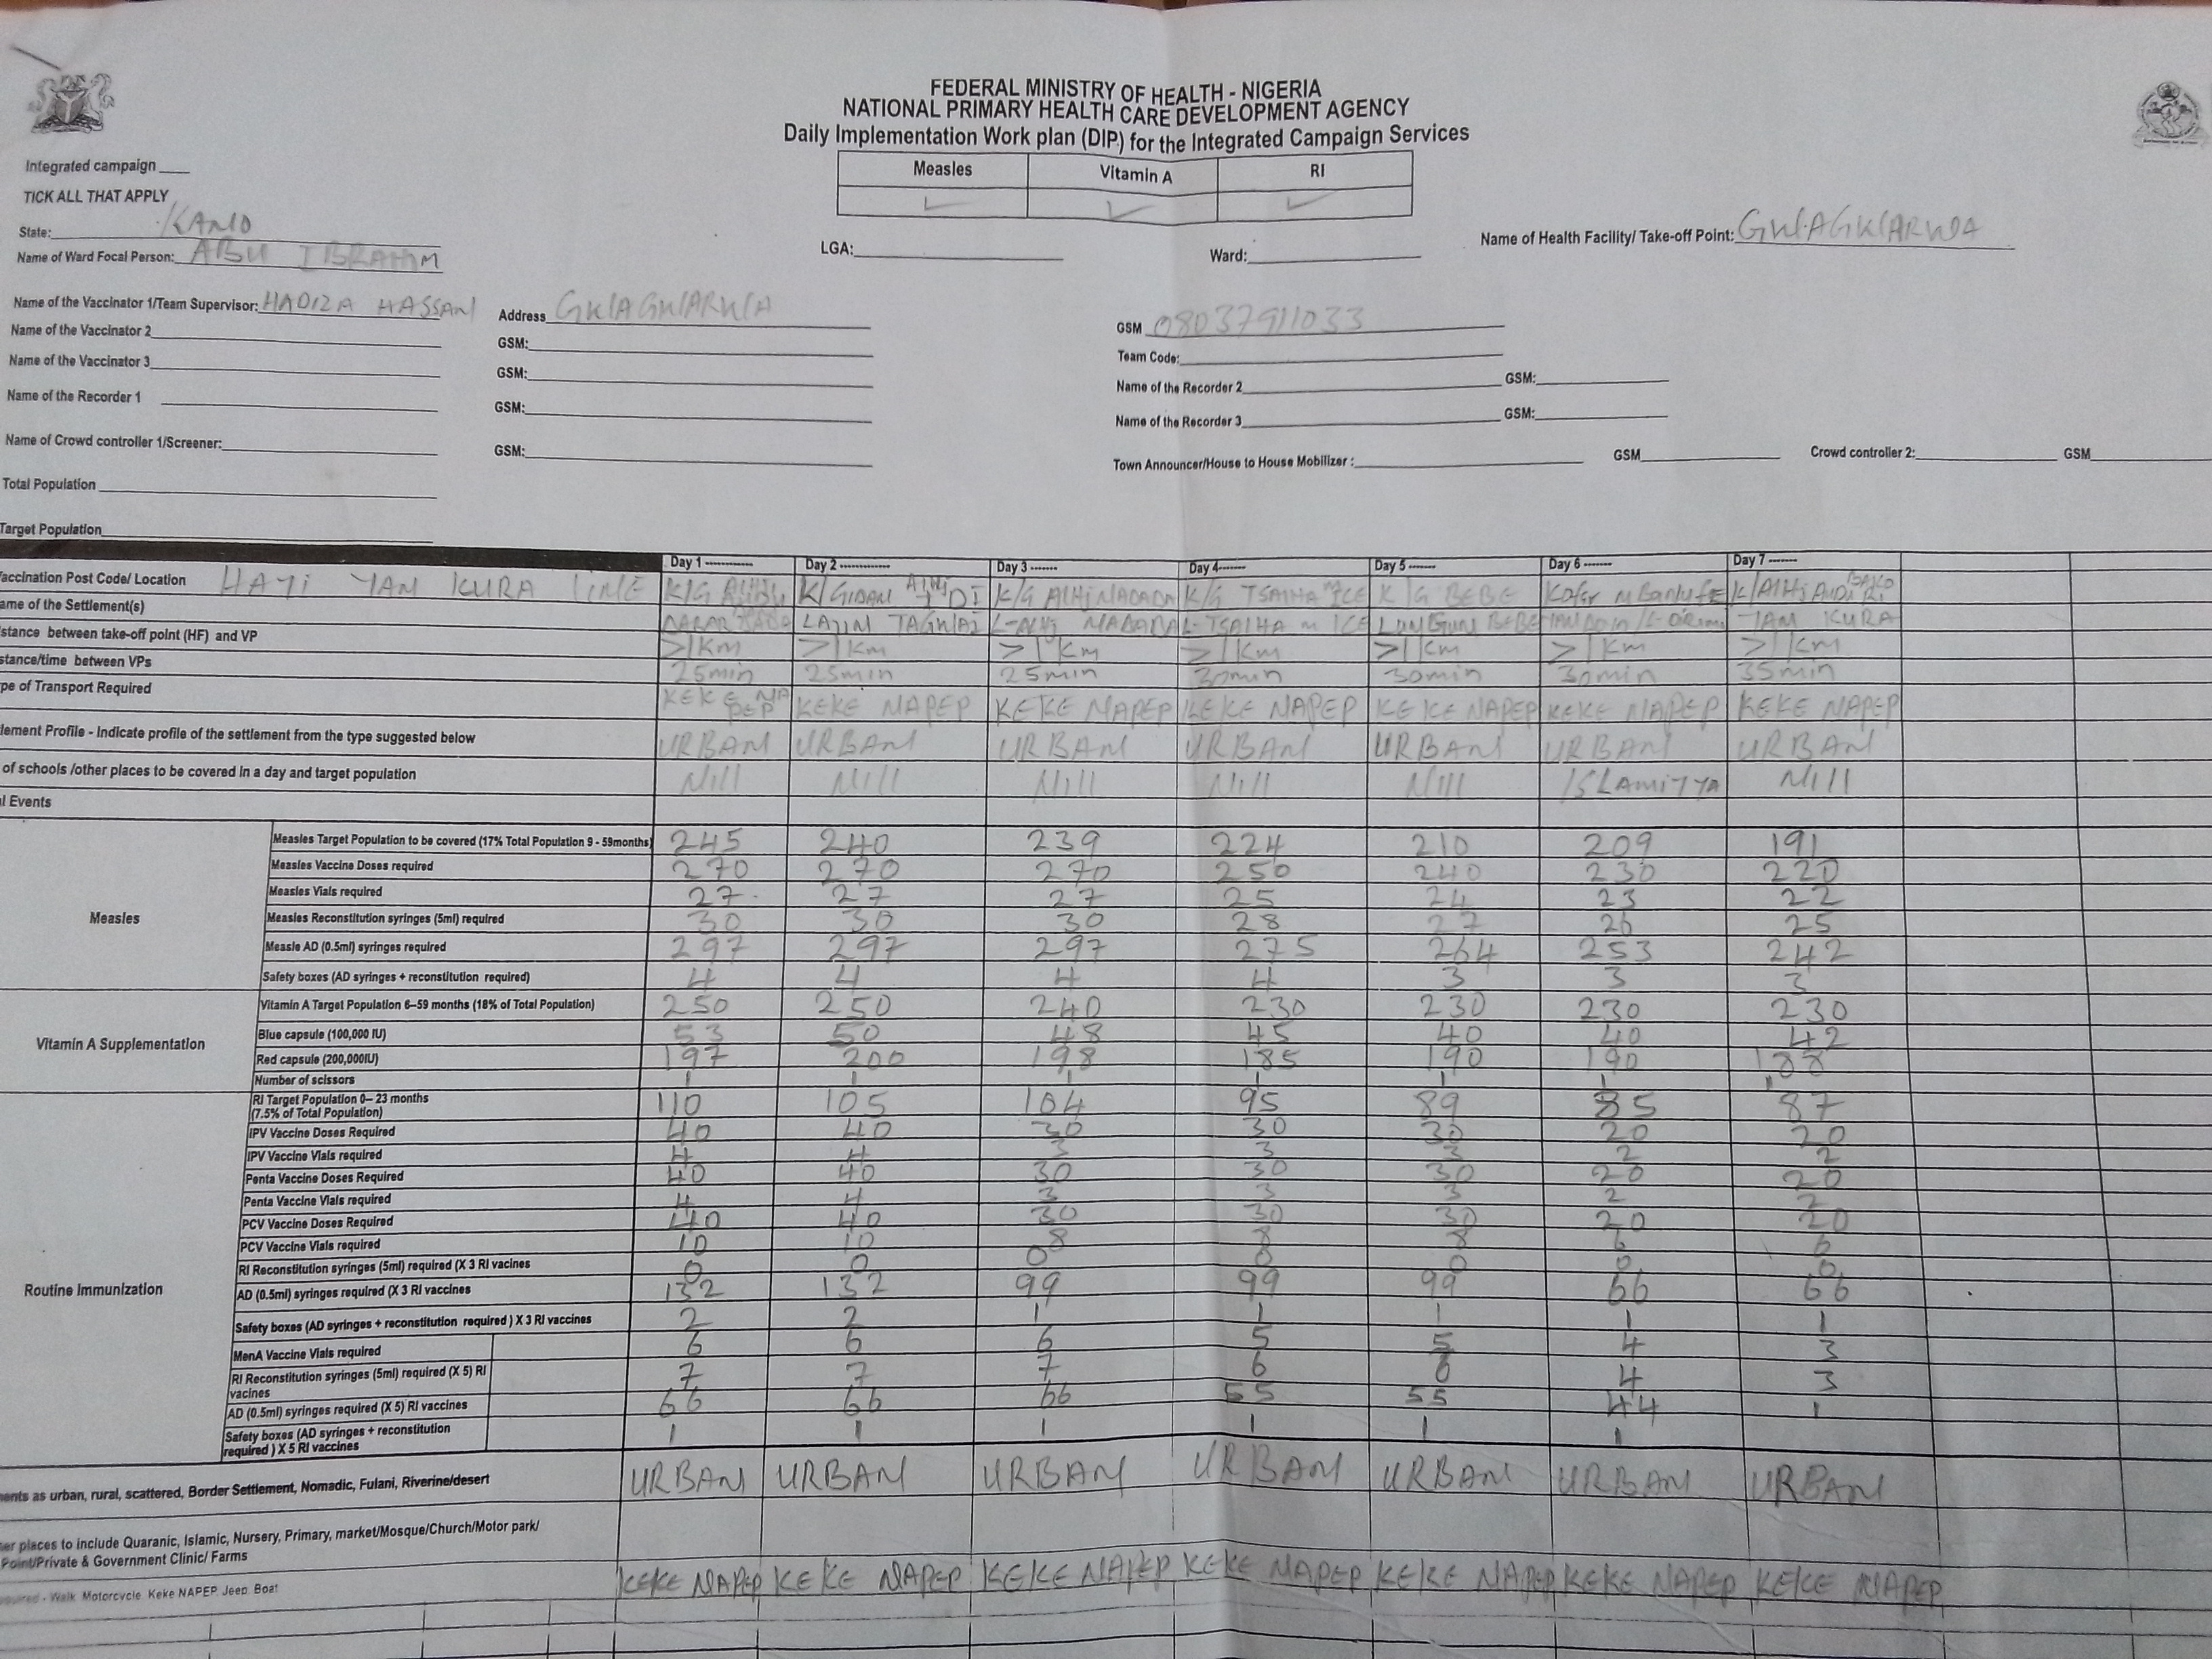 FEDERAL MINISTRY OF HEALTH - NIGERIA
NATIONAL PRIMARY HEALTH CARE DEVELOPMENT AGENCY
Daily Implementation Work plan (DIP) for the Integrated Campaign Services
Measles Vitamin A RI
Integrated campaign
TICK ALL THAT APPLY
State: KANO
Name of Health Facility/ Take-off Point: GWAGWARWA
Name of Ward Focal Person: ABU IBRAHIM LGA: Ward:
Name of the Vaccinator 1/Team Supervisor: HADIZA HASSAN Address GWAGWARWA GSM 08037911033
Name of the Vaccinator 2 GSM: Team Code:
Name of the Vaccinator 3 GSM: Name of the Recorder 2 GSM:
Name of the Recorder 1 GSM: Name of the Recorder 3 GSM:
Name of Crowd controller 1/Screener: GSM: Town Announcer/House to House Mobilizer : GSM Crowd controller 2: GSM
Total Population
Target Population
Day 1 Day 2 Day 3 Day 4 Day 5 Day 6 Day 7
Vaccination Post Code/ Location YAN KURA K/G K/GIDAN ALHJ K/G ALHJ NADADA K/G TSAIHA K/G BEBE Kofar K/ALHJ
ame of the Settlement(s) LAYIN L-ALHJ NADADA L-TSAIHA m ICE LUNGUN BEBE YAN KURA
stance between take-off point (HF) and VP >1Km >1Km >1Km >1Km >1Km >1Km >1Km
stance/time between VPs 25min 25min 25min 30min 30min 30min 35min
pe of Transport Required KEKE NAPEP KEKE NAPEP KEKE NAPEP KEKE NAPEP KEKE NAPEP KEKE NAPEP KEKE NAPEP
lement Profile - Indicate profile of the settlement from the type suggested below URBAN URBAN URBAN URBAN URBAN URBAN URBAN
of schools /other places to be covered in a day and target population Nill Nill Nill Nill Nill ISLAMIYYA Nill
l Events
Measles
Measles Target Population to be covered (17% Total Population 9 - 59months) 245 240 239 224 210 209 191
Measles Vaccine Doses required 270 270 270 250 240 230 220
Measles Vials required 27 27 27 25 24 23 22
Measles Reconstitution syringes (5ml) required 30 30 30 28 27 26 25
Measle AD (0.5ml) syringes required 297 297 297 275 264 253 242
Safety boxes (AD syringes + reconstitution required) 4 4 4 4 3 3 3
Vitamin A Supplementation
Vitamin A Target Population 6–59 months (18% of Total Population) 250 250 240 230 230 230 230
Blue capsule (100,000 IU) 53 50 48 45 40 40 42
Red capsule (200,000IU) 197 200 198 185 190 190 188
Number of scissors 1 1 1 1 1 1 1
Routine Immunization
RI Target Population 0– 23 months 110 105 104 95 89 85 87
(7.5% of Total Population)
IPV Vaccine Doses Required 40 40 30 30 30 20 20
IPV Vaccine Vials required 4 4 3 3 3 2 2
Penta Vaccine Doses Required 40 40 30 30 30 20 20
Penta Vaccine Vials required 4 4 3 3 3 2 2
PCV Vaccine Doses Required 40 40 30 30 30 20 20
PCV Vaccine Vials required 10 10 8 8 8 6 6
RI Reconstitution syringes (5ml) required (X 3 RI vacines 0 0 0 0 0 0 0
AD (0.5ml) syringes required (X 3 RI vaccines 132 132 99 99 99 66 66
Safety boxes (AD syringes + reconstitution required ) X 3 RI vaccines 2 2 1 1 1 1 1
MenA Vaccine Vials required 6 6 6 5 5 4 3
RI Reconstitution syringes (5ml) required (X 5) RI 7 7 7 6 6 4 3
vacines
AD (0.5ml) syringes required (X 5) RI vaccines 66 66 66 55 55 44 1
Safety boxes (AD syringes + reconstitution 1 1 1 1 1 1
required ) X 5 RI vaccines
ments as urban, rural, scattered, Border Settlement, Nomadic, Fulani, Riverine/desert URBAN URBAN URBAN URBAN URBAN URBAN URBAN
her places to include Quaranic, Islamic, Nursery, Primary, market/Mosque/Church/Motor park/
Point/Private & Government Clinic/ Farms
equired - Walk Motorcycle Keke NAPEP Jeep Boat KEKE NAPEP KEKE NAPEP KEKE NAPEP KEKE NAPEP KEKE NAPEP KEKE NAPEP KEKE NAPEP